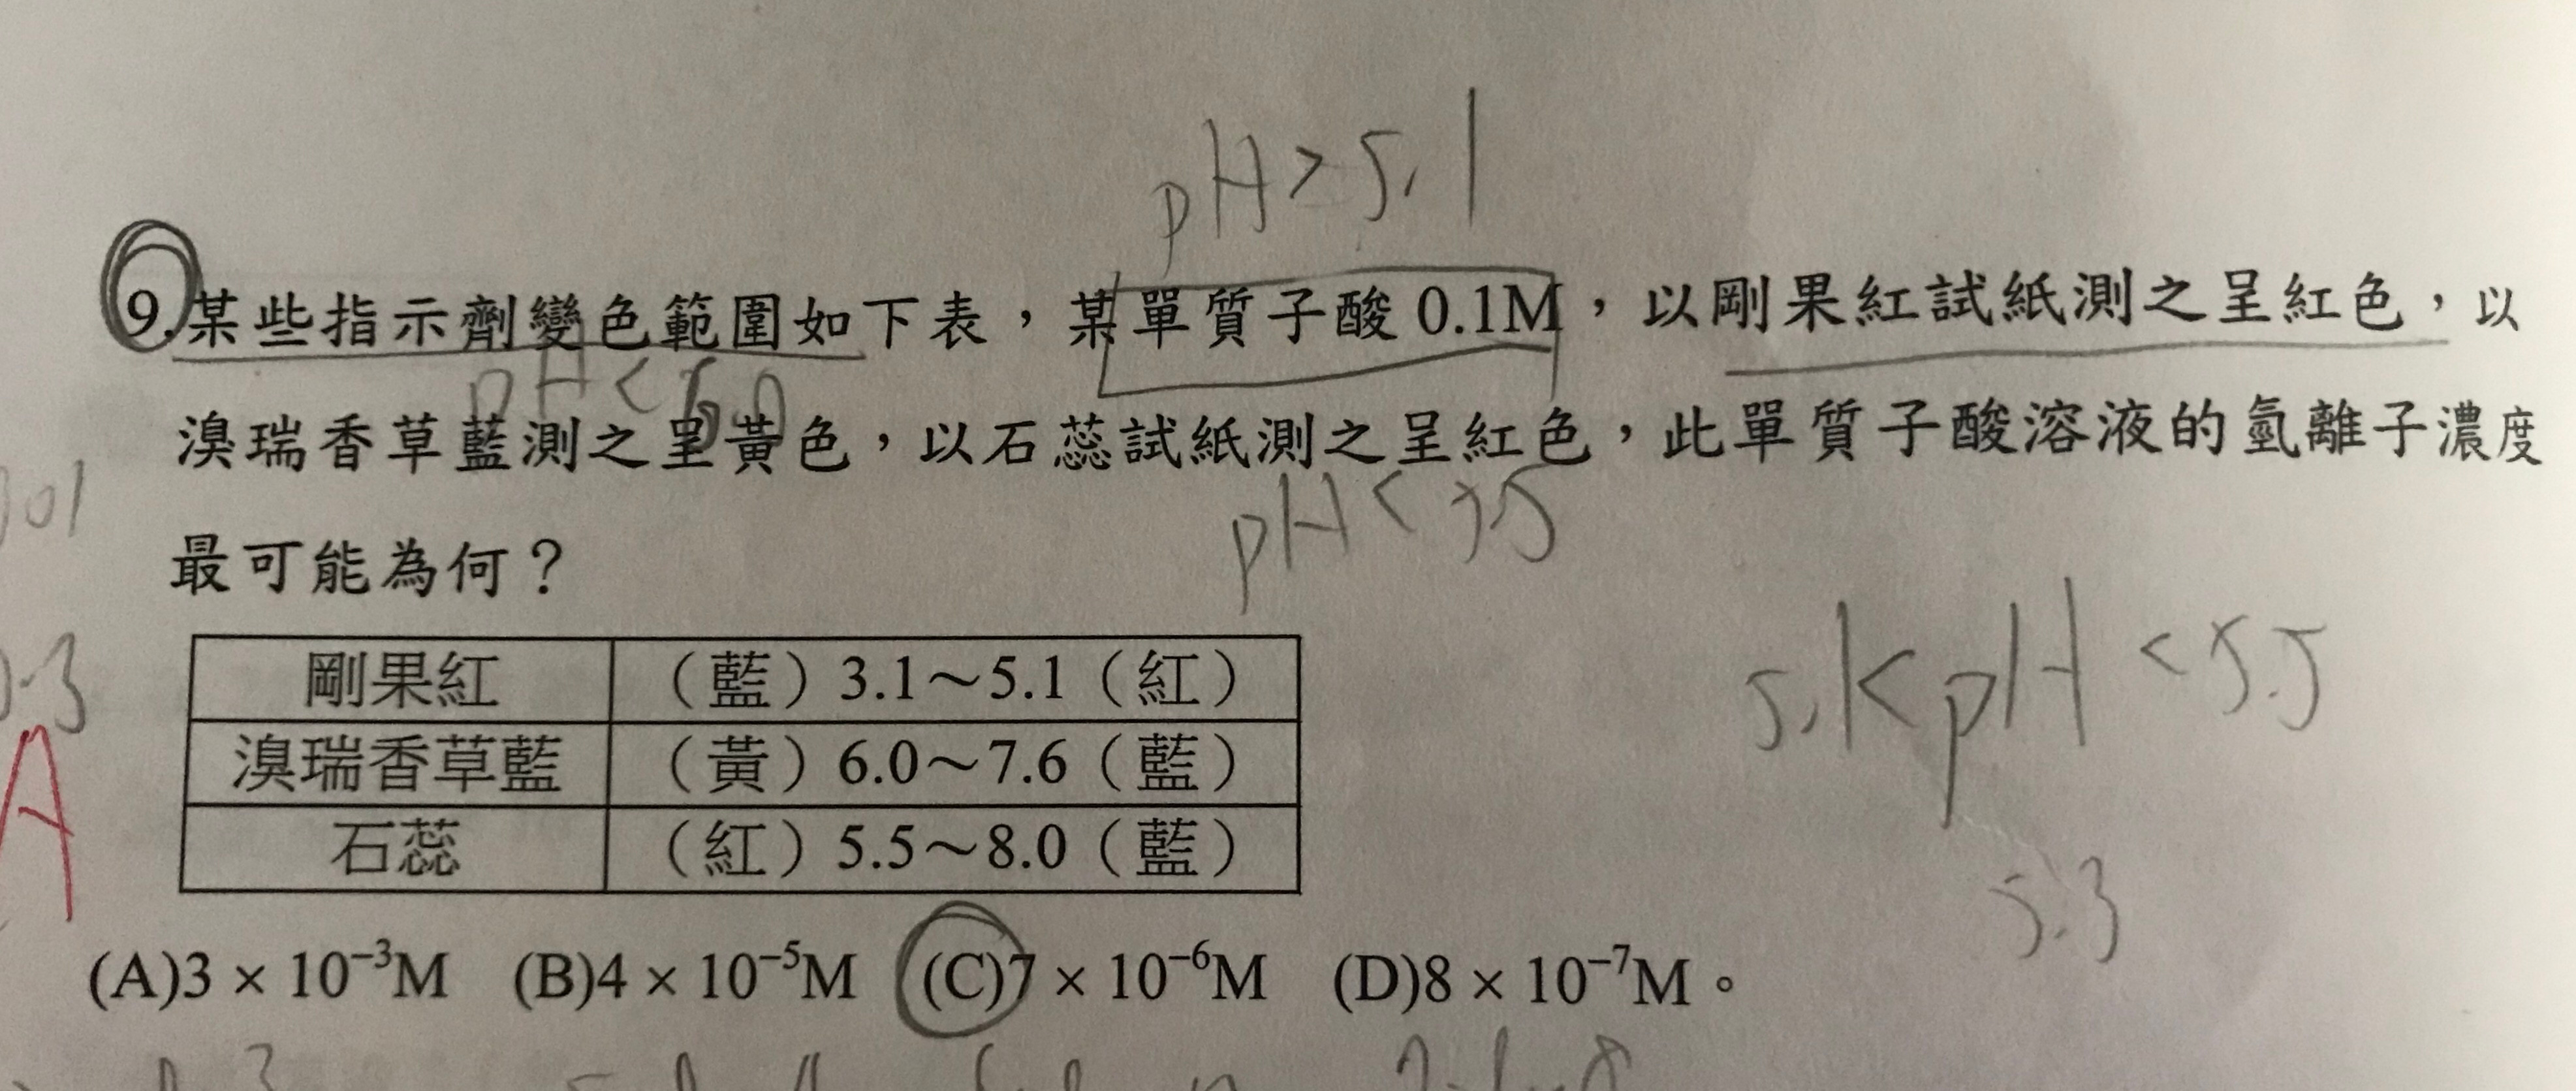 pH > 5.1
9.某些指示劑變色範圍如下表，某單質子酸 0.1M，以剛果紅試紙測之呈紅色，以
pH < 6.0
溴瑞香草藍測之呈黃色，以石蕊試紙測之呈紅色，此單質子酸溶液的氫離子濃度
001
pH < 5.5
最可能為何？
剛果紅 （藍）3.1～5.1（紅）
5.1 < pH < 5.5
溴瑞香草藍 （黃）6.0～7.6（藍）
A
石蕊 （紅）5.5～8.0（藍）
5.3
(A)3 × 10⁻³M (B)4 × 10⁻⁵M (C)7 × 10⁻⁶M (D)8 × 10⁻⁷M。